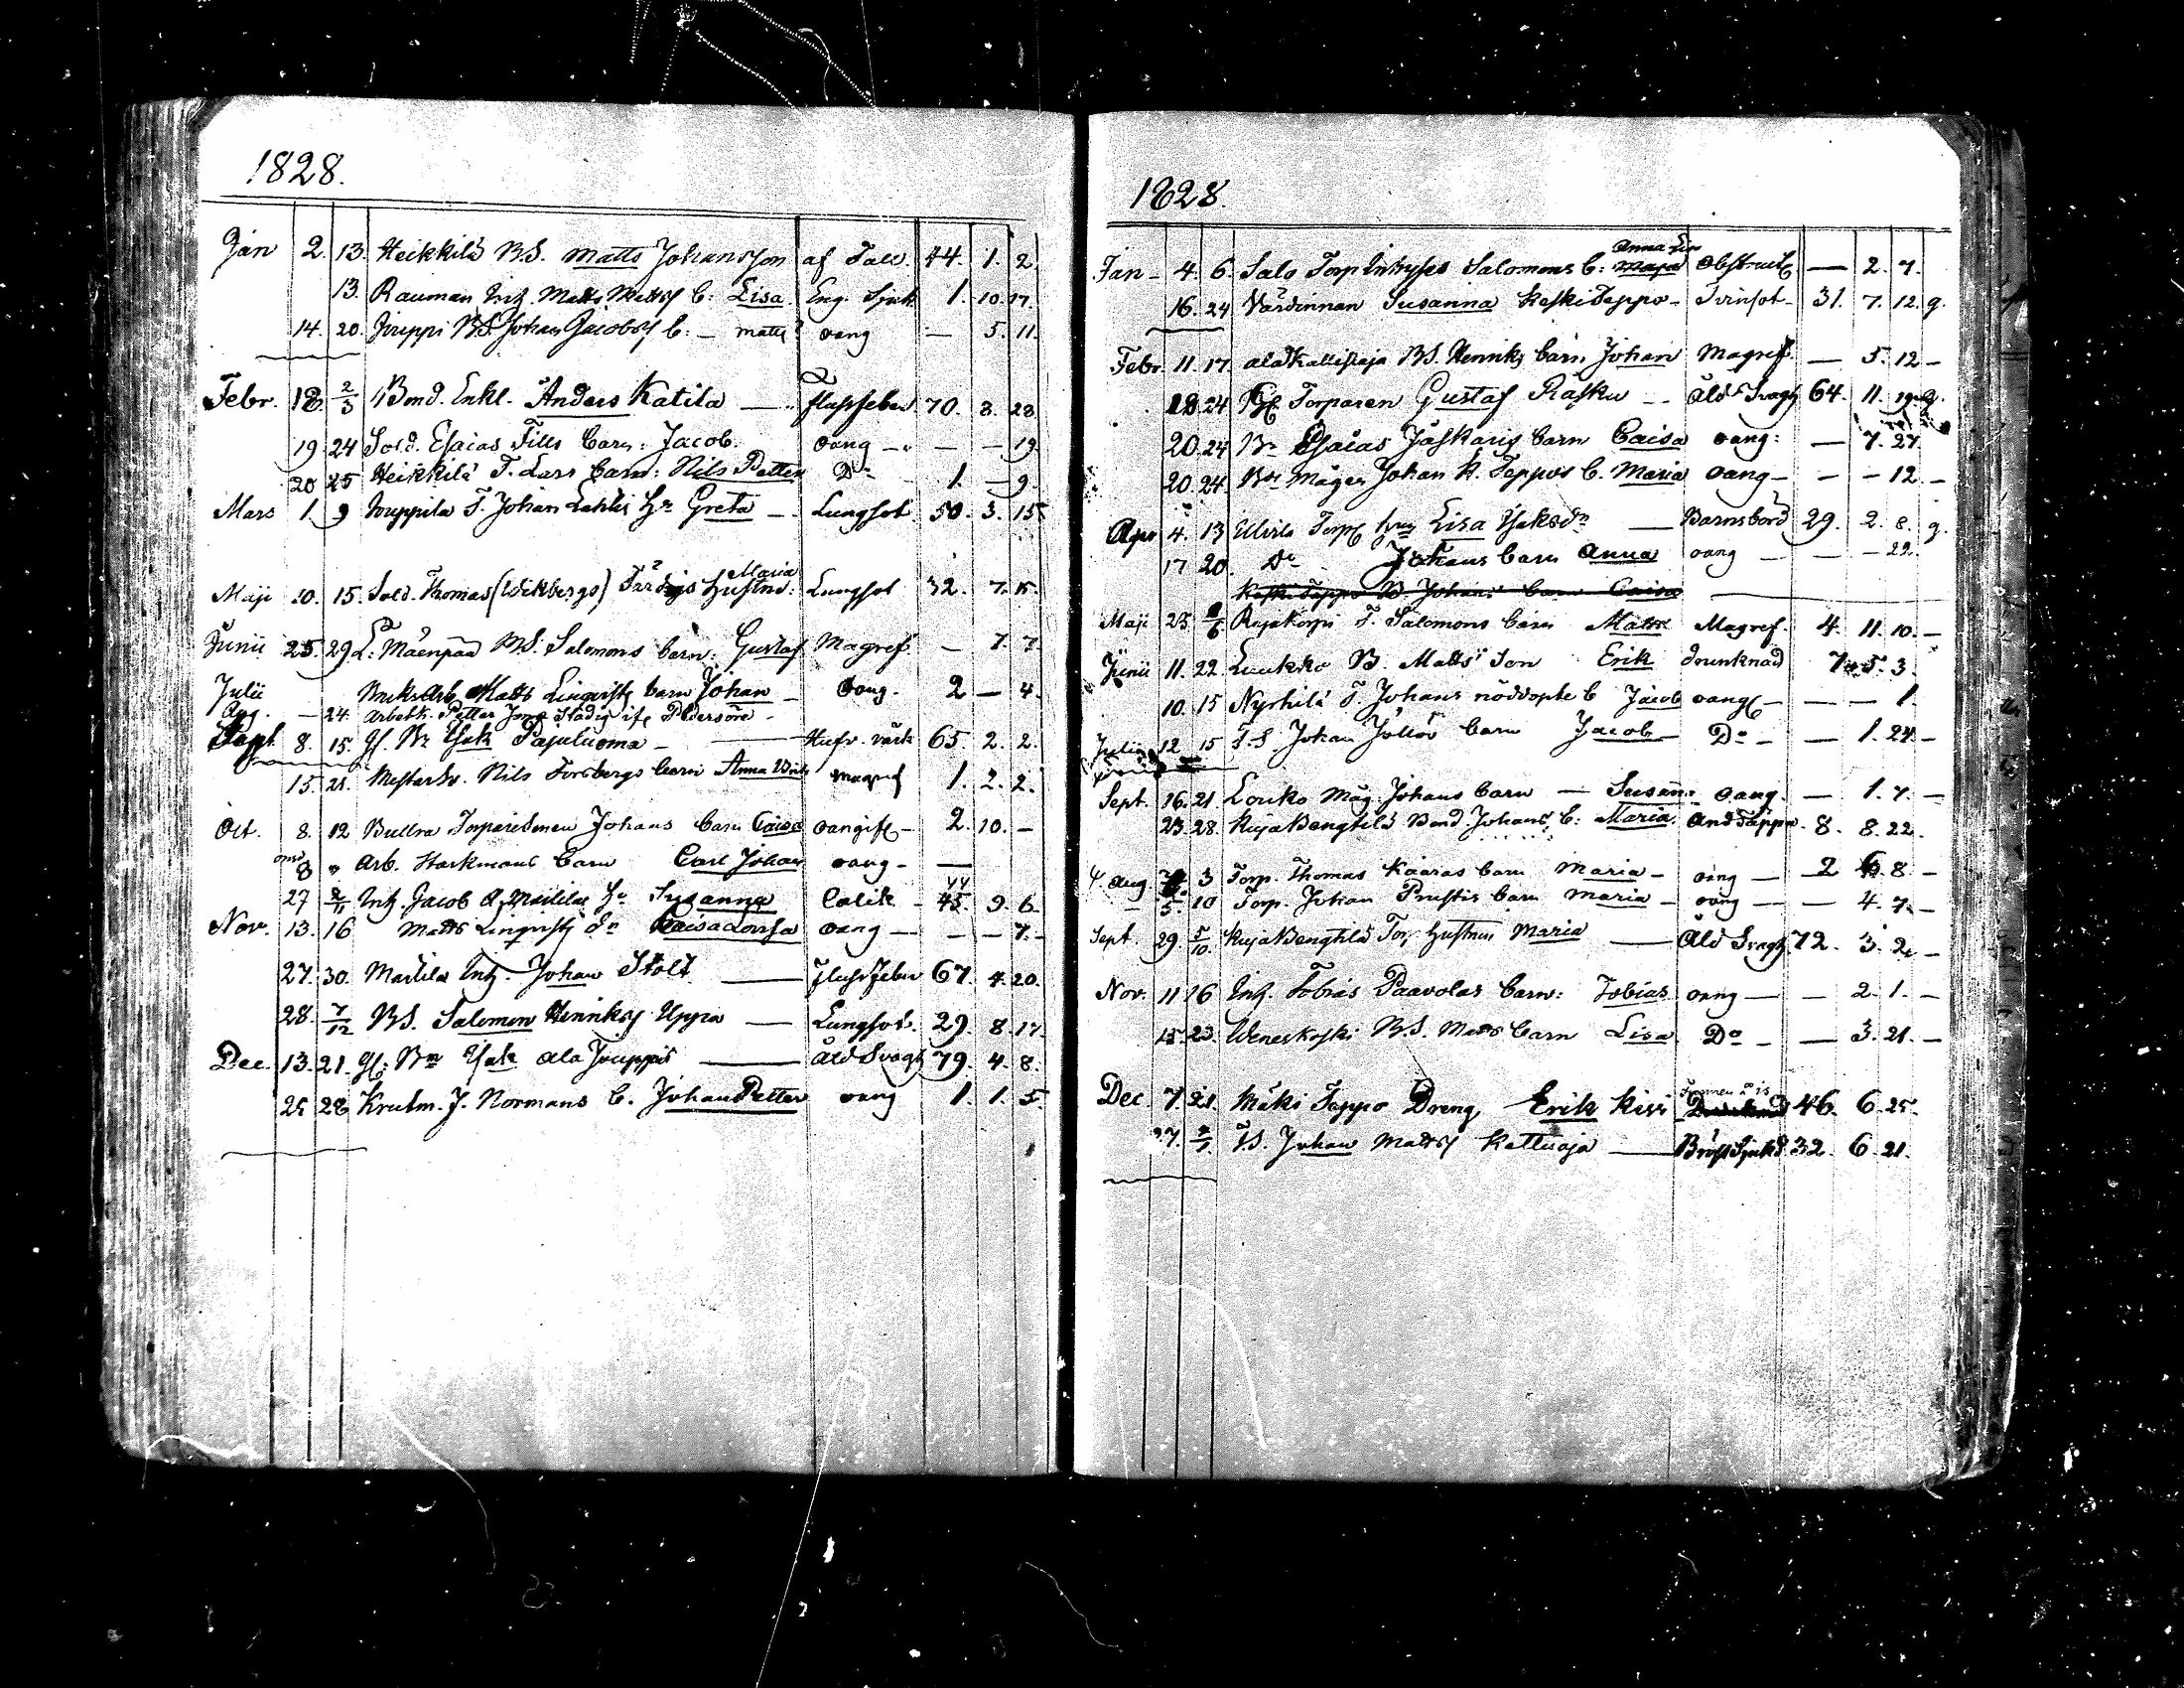 1828.
Jan 2. 13. Heikkilä B.S. Matts Johansson af Fall. 44. 1. 2.
13. Rauman Inh. Matts Mattss C: Lisa. Eng. Sjuk 1. 10. 17.
14. 20. Jouppi B.S. Johan Jacobss C: — Matts oang — 5. 11.
Febr. 18. 2/3 Bond. Enkl. Anders Katila — Flussfeber 70. 3. 28
19. 24 Sold. Esaias Fills Barn: Jacob. oang — — — 19.
20 25 Heikkilä T. Lars Barn: Nils Petter Do 1. — 9.
Mars 1. 9 Jouppila T. Johan Lahtis Hu Greta — Lungsot 50. 3. 15.
Maji 10. 15. Sold. Thomas (Wekbergs) Färdigs Hustru: Maria Lungsot 32. 7. 15.
Junii 25. 29 L: Mäenpää B.S. Salomons Barn: Gustaf Magref. — 7. 7.
Julii Matts Linqvists barn Johan — oang. 2 — 4.
Aug. — 24. Arbetk. Petter Stadig Pedersöre —
Sept. 8. 15. Gl. Br Isak Pajuluoma — Hufv. värk 65. 2. 2.
15. 21. Nils Forsbergs barn Anna Magref 1. 2. 2.
Oct. 8. 12 Bullra Johans barn Caisa oangift — 2. 10. —
8 " Arb. Starkmans Barn Carl Johan oang — —
27 2/11 Inh. Jacob A. Martilas Hu Susanna Colik — 44 45. 9. 6.
Nov. 13. 16 Matts Linqvists Dr Caisa Lovisa oang — — — 7. —
27. 30. Martila Inh. Johan Stolt — Flussfeber 67. 4. 20.
28. 7/12 B.S. Salomon Henrikss Uppa — Lungsot. 29. 8. 17.
Dec. 13. 21. Gl: Bn Isak Ala Jouppis — Åld Svagh 79. 4. 8.
25 28 Krutm. J. Normans C. Johan Petter oang 1. 1. 5.
1828.
Jan — 4. 6. Salo Torp Inhyses Salomons C: Anna Lis Maja Obstruct. — 2. 7.
16. 24 Värdinnan Susanna Keski Seppo — Tvinsot — 31. 7. 12. g.
Febr. 11. 17. Ala Kallioja B.S. Henriks barn Johan Magref. — 5. 12 —
18. 24 Gl. Torparen Gustaf Räsku — Åld Svagh 64. 11. 19. g.
20. 24 Br Esaias Jäskaris barn Caisa oang: — 7. 27.
20. 24. Br Mågen Johan K. Seppos C. Maria oang — — — 12. —
Apr 4. 13 Lisa Isaksdr — Barnsbörd 29. 2. 8. g.
17 20. Do Johans Barn Anna oang — — — 22.
Keski Seppo B Johans Barn Caisa
Maji 25. /6 Rajakorpi T. Salomons barn Matts Magref. 4. 11. 10. —
Junii 11. 22. Luukko B. Matts Son Erik drunknad 7. 5. 3.
10. 15 Nyrhilä T. Johans nöddöpte C Jacob oang — — — 1.
Julii 12 15 T.S. Johan Jollos Barn Jacob — Do — — 1. 24. —
Sept. 16. 21 Louko Måg Johans Barn — Susan: oang. — 1. 7. —
23. 28. Raja Bengtilä Bond. Johans C: Maria. And Täppa. 8. 8. 22.
Aug. 3 Torp. Thomas Kääräs barn Maria — oang — 2 6 8 —
5. 10 Torp. Johan barn Maria — oang — — 4. 7. —
Sept. 29. 5/10 Raja Bengtilä Torp. Hustrun Maria — Åld Svagh. 72. 3. 2. —
Nov. 11 16 Inh. Tobias Paavolas barn: Tobias oang — — 2. 1. —
15. 23. Weneskoski B.S. Matts barn Lisa Do — — 3. 21. —
Dec 7. 21. Mäki Seppo Dreng, Erik Kivi 46. 6. 25.
27. T.S. Johan Mattss Kattuoja — Bröst Sjukd 32 6. 21.